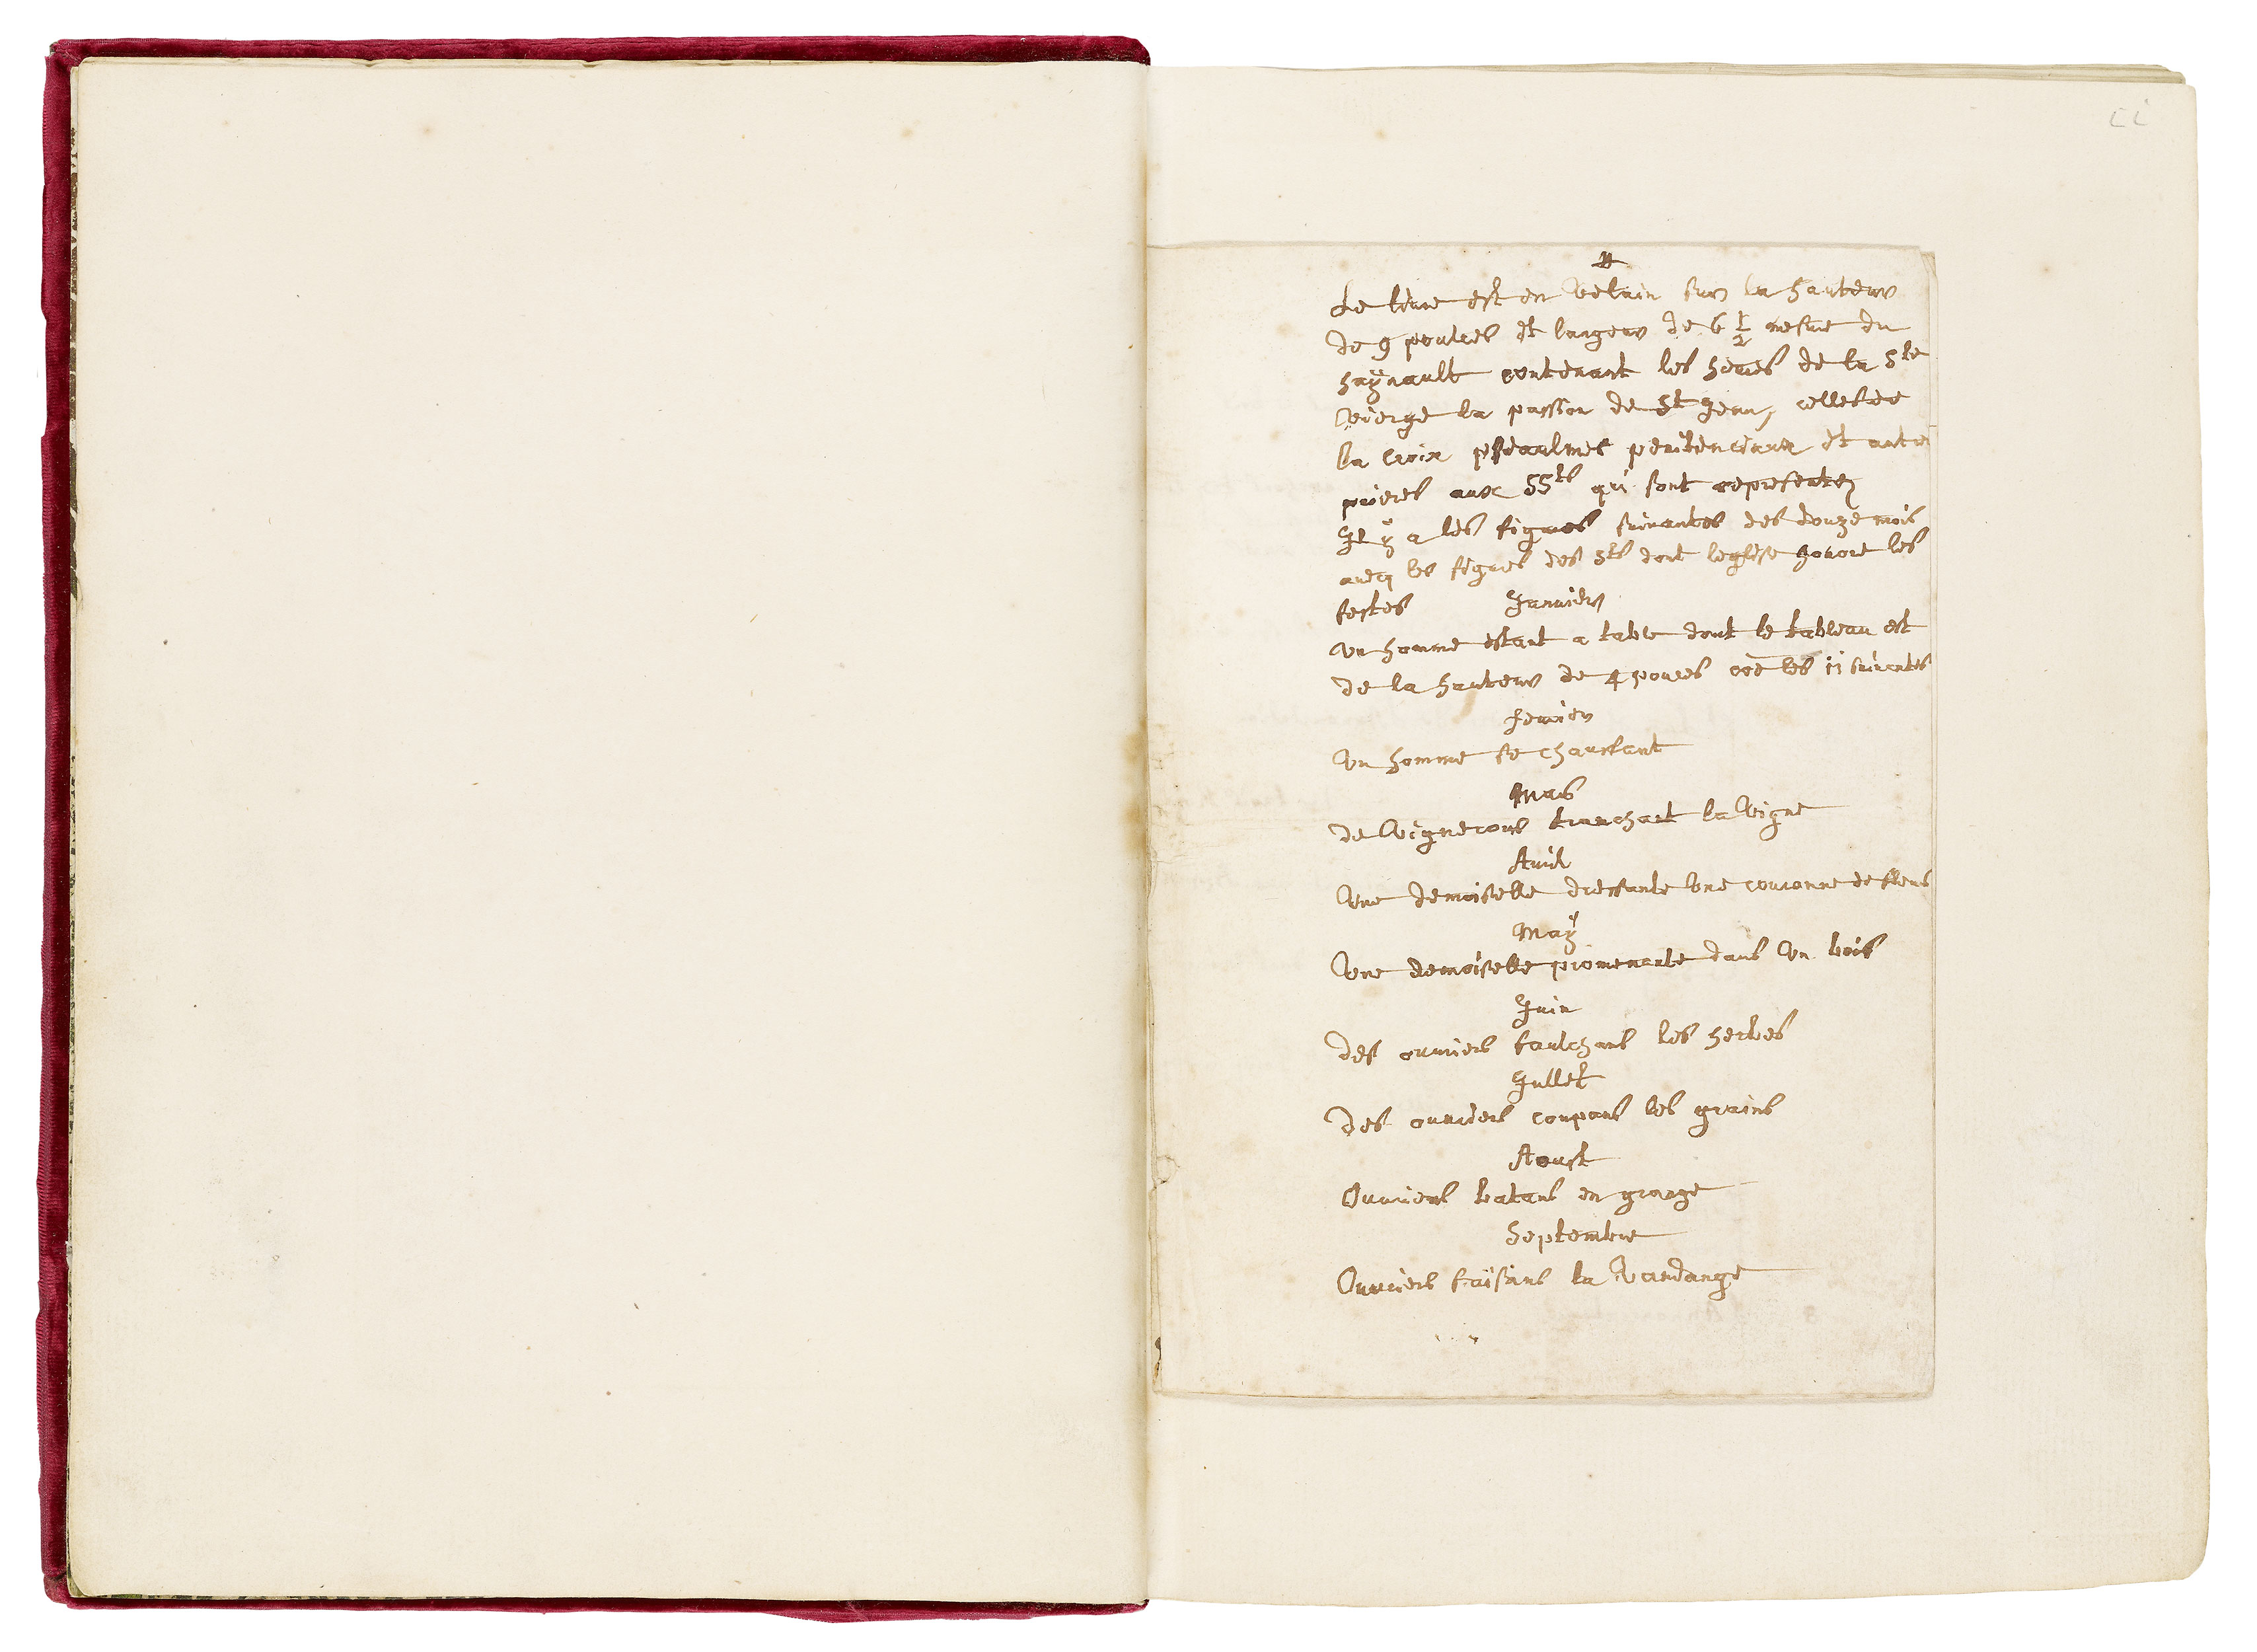 cc
Le liure est en velain sur la hauteur
de 9 poulces et largeur de 6 1/2 mesure du
haÿnault contenant les heures de la Ste
vierge la passion de St Jean, celles de
la croix pseaulmes penitenciaux et autre
prieres aux SStes qui sont representez
Jl ÿ a les figures suivantes des douze mois
avecq les figures des Sts dont leglise honore les
festes Januier
un homme estant a table dont le tableau est
de la hauteur de 4 pouces coe les 11 suivantes
feurier
Un homme se chauffant
Mars
de vignerons tranchant la vigne
Auril
Une demoiselle dressante une couronne de fleurs
Maÿ
Une demoiselle promenante dans un bois
Juin
des ouuriers faulchans les herbes
Jullet
des ouuriers coupans les grains
Aoust
Ouuriers batans en grange
Septembre
Ouuriers faisans la vandange